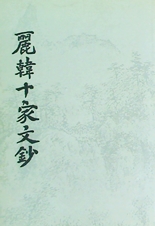 麗韓十家文鈔